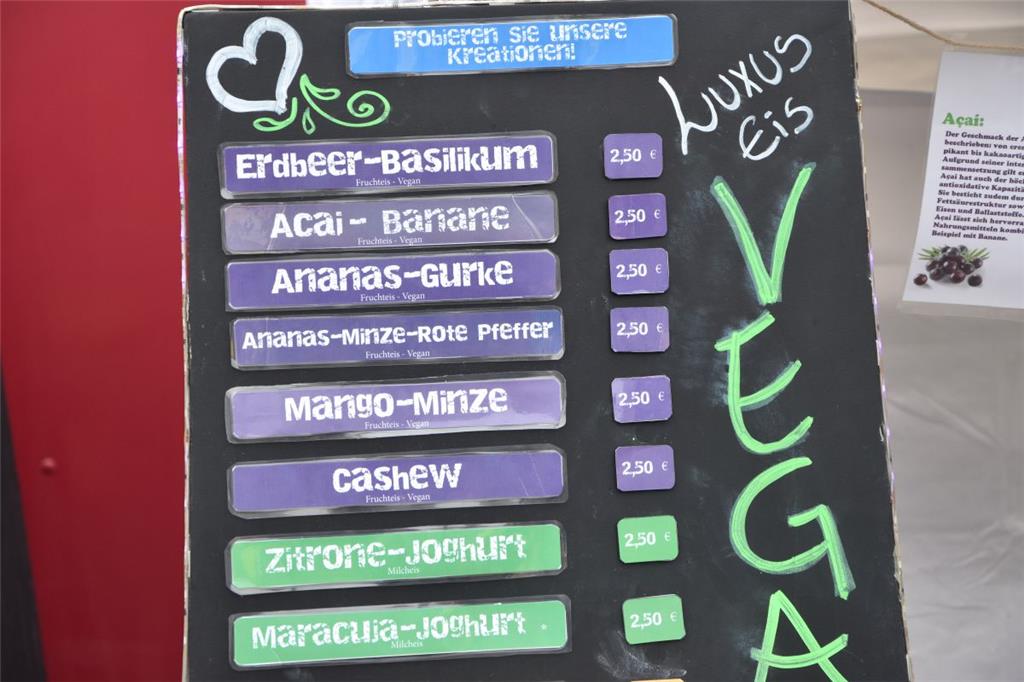 Probieren sie unsere
Kreationen!
Luxus
Eis
Erdbeer-Basilikum
Fruchteis - Vegan
2,50 €
Acai - Banane
Fruchteis - Vegan
2,50 €
Ananas-Gurke
Fruchteis - Vegan
2,50 €
Ananas-Minze-Rote Pfeffer
Fruchteis - Vegan
2,50 €
Mango-Minze
Fruchteis - Vegan
2,50 €
Cashew
Fruchteis - Vegan
2,50 €
Zitrone-Joghurt
Milcheis
2,50 €
Maracuja-Joghurt *
Milcheis
2,50 €
VEGA
Açai:
Der Geschmack der
beschrieben: von
pikant bis kakaoartig
Aufgrund seiner
sammensetzung gilt
Açai hat auch der
antioxidative
Sie besticht zudem
Fettsäurestruktur
Eisen und Ballaststoffe.
Açai lässt sich
Nahrungsmitteln
Beispiel mit Banane.